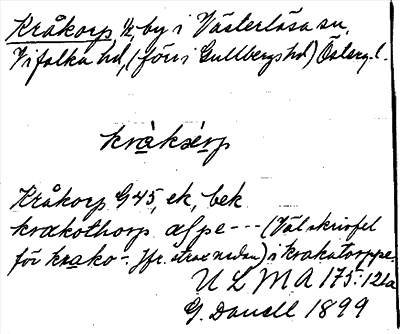 Kråkorp ½, by i Västerlösa sn,
Vifolka hd, (förr i Gullbergs hd) Österg. l.
kràksèrp
Kråkorp G 45, ek, bek
krækothorp æfpe --- (Väl skrivfel
för krako-. Jfr. strax nedan) i krakatorppe.
ULMA 175:12a
G. Danell 1899